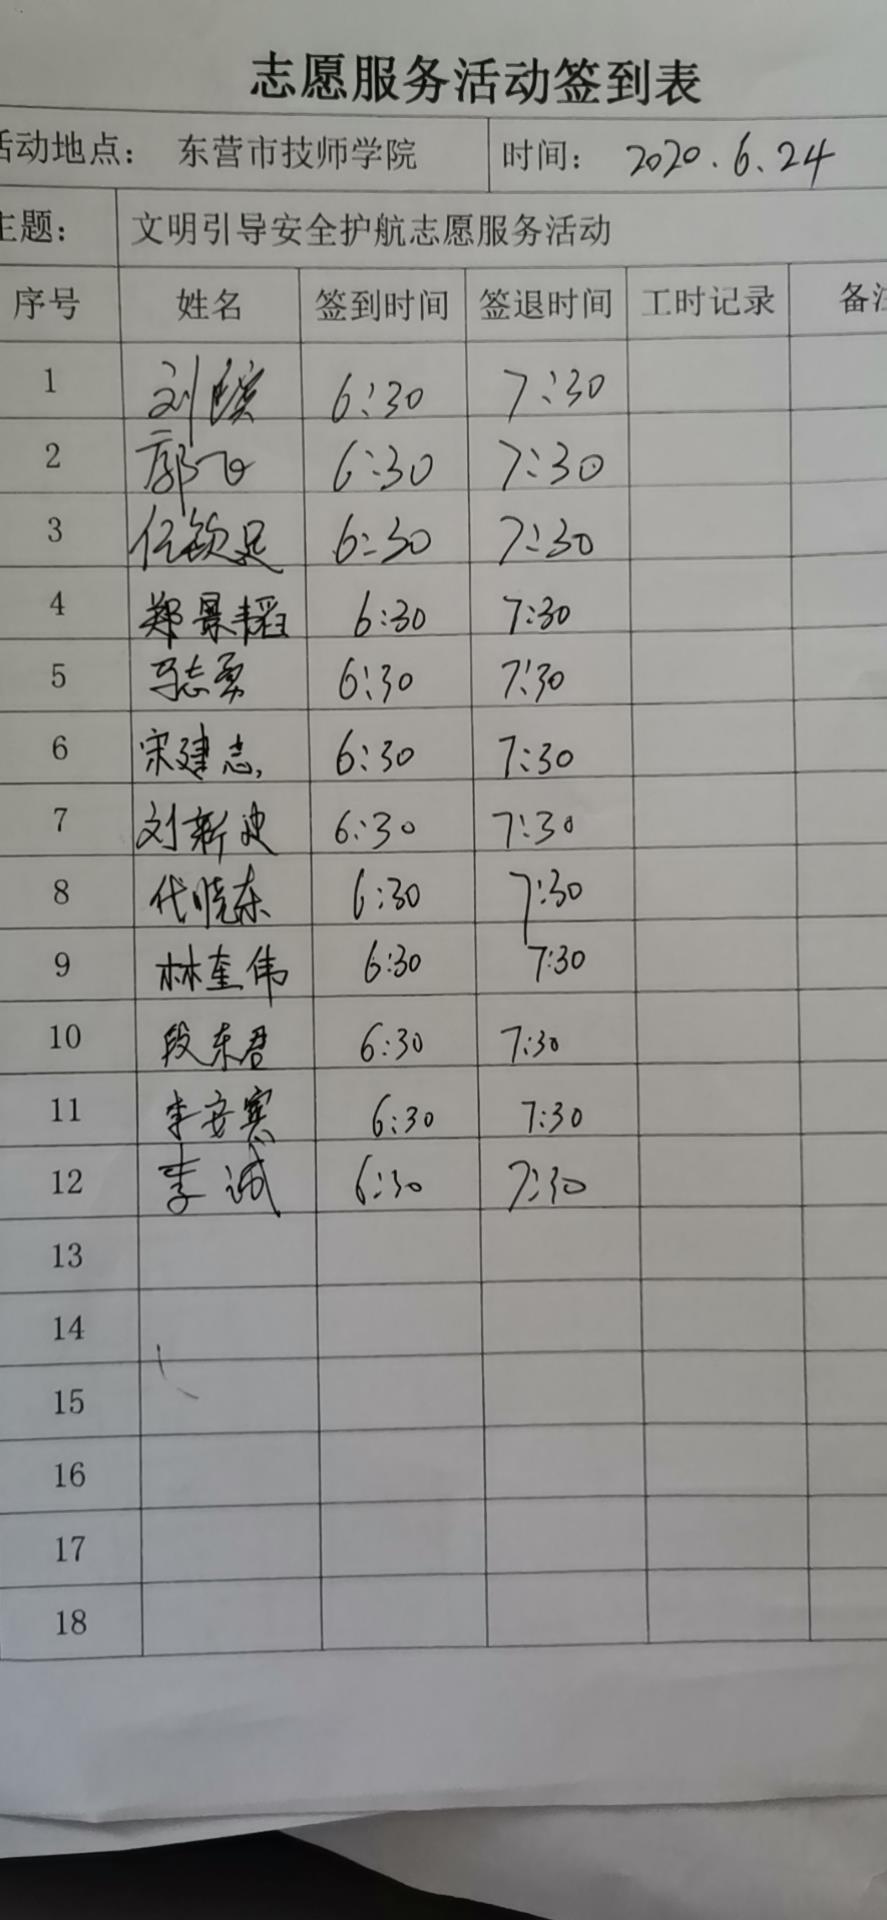 志愿服务活动签到表
活动地点： 东营市技师学院 时间： 2020.6.24
主题： 文明引导安全护航志愿服务活动
序号 姓名 签到时间 签退时间 工时记录 备注
1 刘 6:30 7:30
2 郭飞 6:30 7:30
3 任钦 6:30 7:30
4 郑景韬 6:30 7:30
5 马志勇 6:30 7:30
6 宋建志 6:30 7:30
7 刘新波 6:30 7:30
8 代晓东 6:30 7:30
9 林奎伟 6:30 7:30
10 段东君 6:30 7:30
11 李安宾 6:30 7:30
12 李诚 6:30 7:30
13
14
15
16
17
18